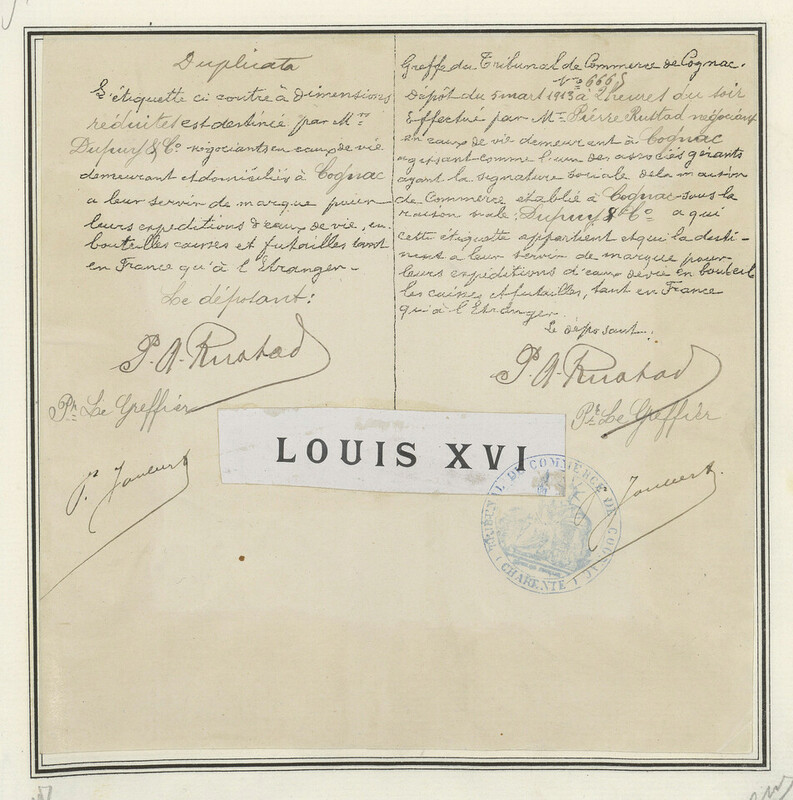 Duplicata
L'étiquette ci contre à Dimensions
réduites est destinée par Mrs
Dupuy & Co. négociants en eaux de vie
demeurant et domiciliés à Cognac
a leur servir de marque pour
leurs expéditions d'eaux de vie, en
bouteilles caisses et futailles tant
en France qu'à l'Etranger -
Le dépotant:
P. A. Rustad
Pr Le Greffier
Greffe du Tribunal de Commerce de Cognac.
No 6665
Dépôt du 5 mart 1913 à 2 heures du soir
Effectué par Mr Pierre Rustad négociant
en eaux de vie demeurant à Cognac
agissant comme l'un des associés gérants
ayant la signature sociale de la maison
de Commerce établie à Cognac sous la
raison s ale: Dupuy & Co a qui
cette étiquette appartient et qui la desti-
nent a leur servir de marque pour
leurs expéditions d'eaux de vie en bouteil
les caisses et futailles, tant en France
qu'à l'Etranger
Le déposant:
P. A. Rustad
Pr Le Greffier
LOUIS XVI
TRIBUNAL DE COMMERCE DE COGNAC
(CHARENTE)